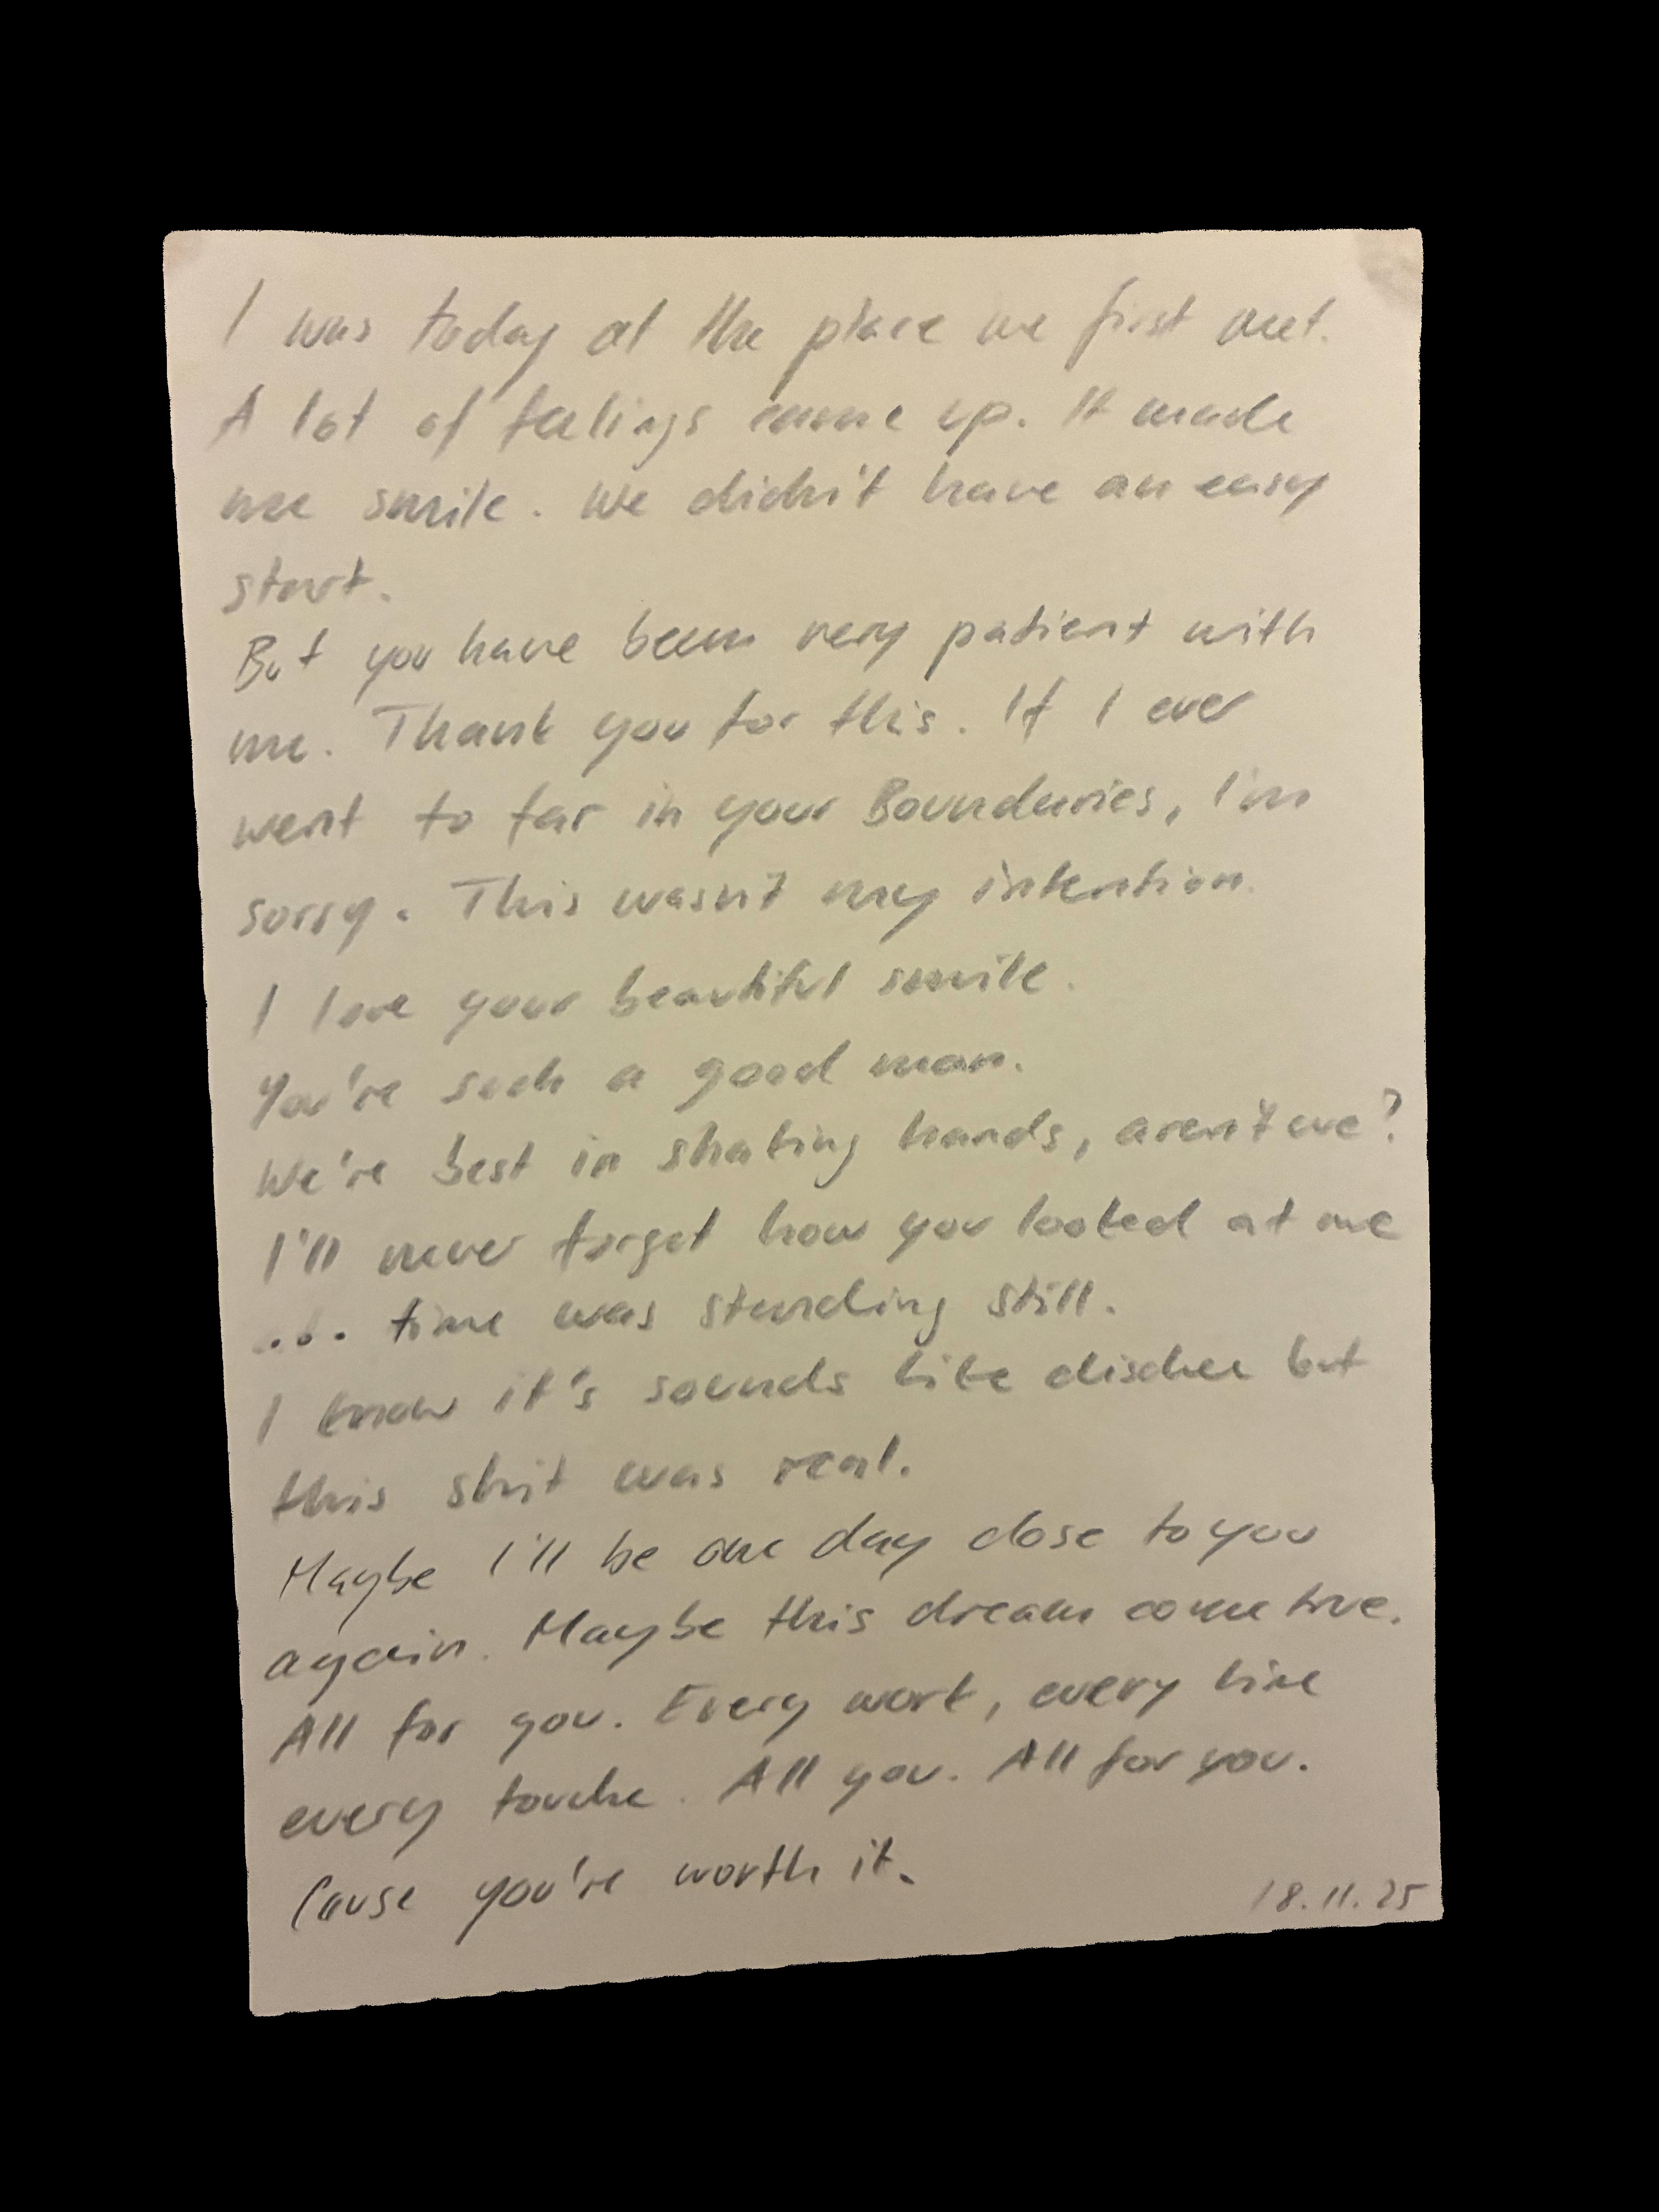 I was today at the place we first met.
A lot of feelings came up. It made
me smile. We didn't have an easy
start.
But you have been very patient with
me. Thank you for this. If I ever
went to far in your Boundaries, I'm
sorry. This wasn't my intention.
I love your beautiful smile.
You're such a good man.
We're best in shaking hands, aren't we?
I'll never forget how you looked at me
... time was standing still.
I know it's sounds like clischee but
this shit was real.
Maybe I'll be one day close to you
again. Maybe this dream come true.
All for you. Every work, every line
every touche. All you. All for you.
Cause you're worth it.
18.11.25